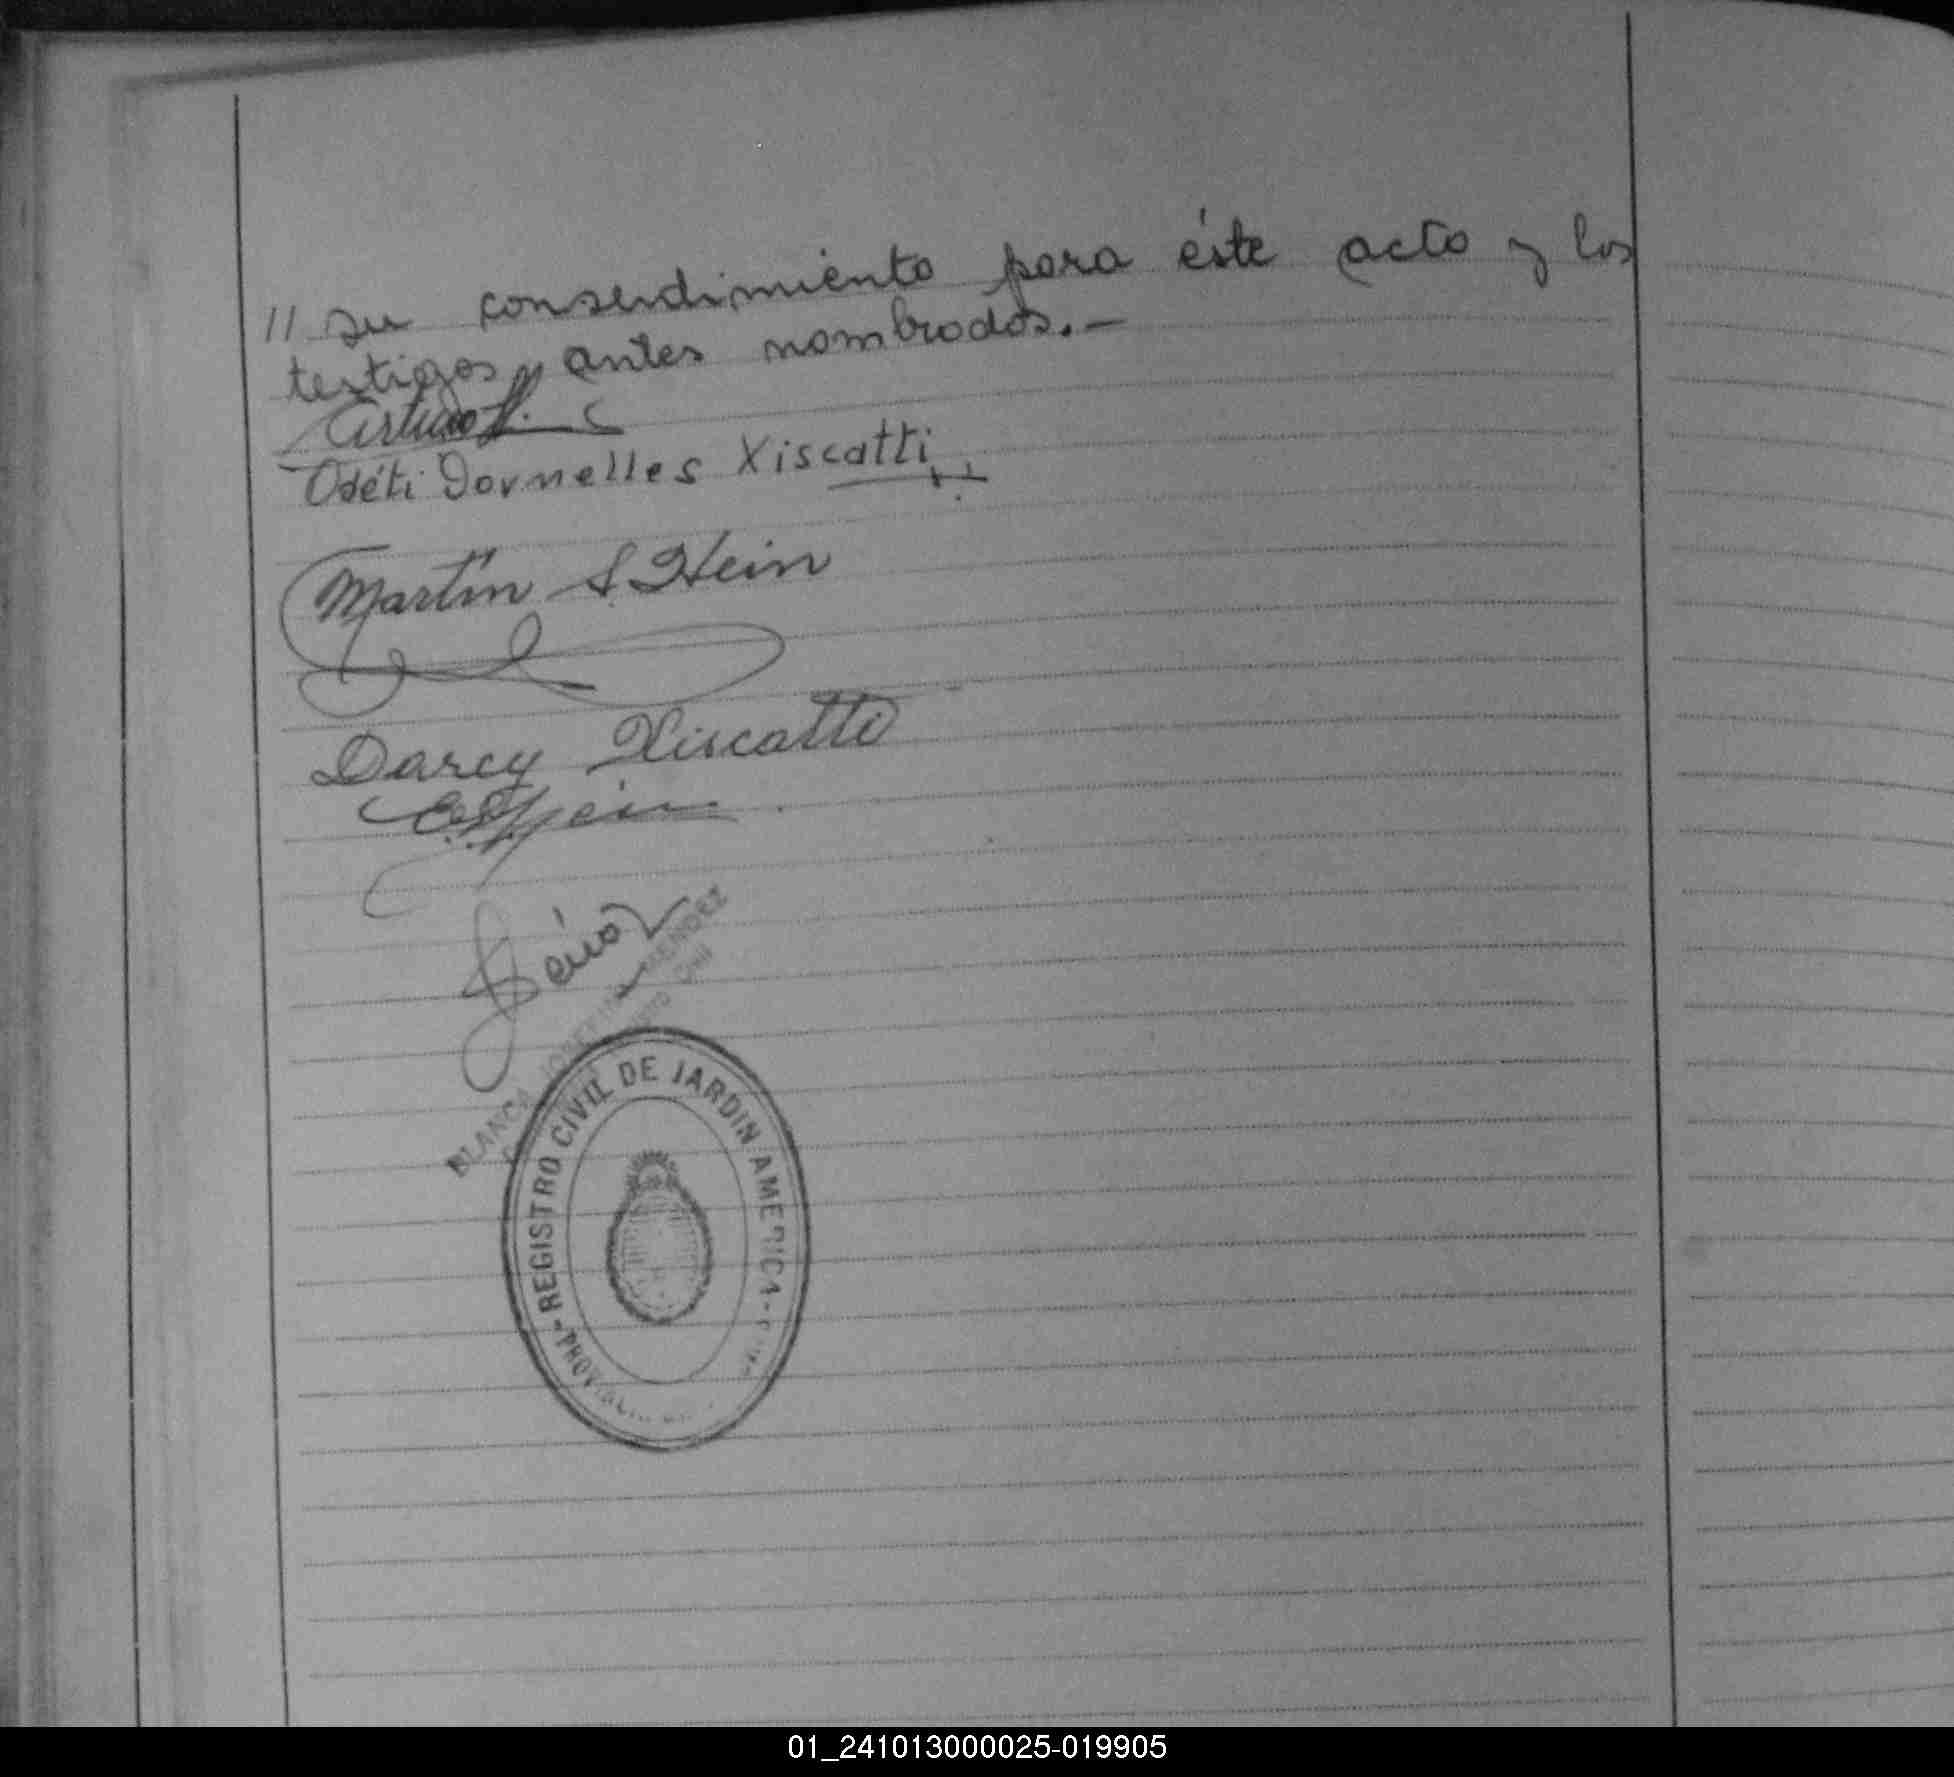 // su consendimiento para éste acto y los
testigos antes nombrados.—
Arturo H.
Odéti Dornelles Xiscatti
Martín S. Hein
Darcy Xiscatti
BLANCA JOSEFINA MENDEZ
-REGISTRO CIVIL DE JARDIN AMERICA-
PROVINCIA DE
01_241013000025-019905